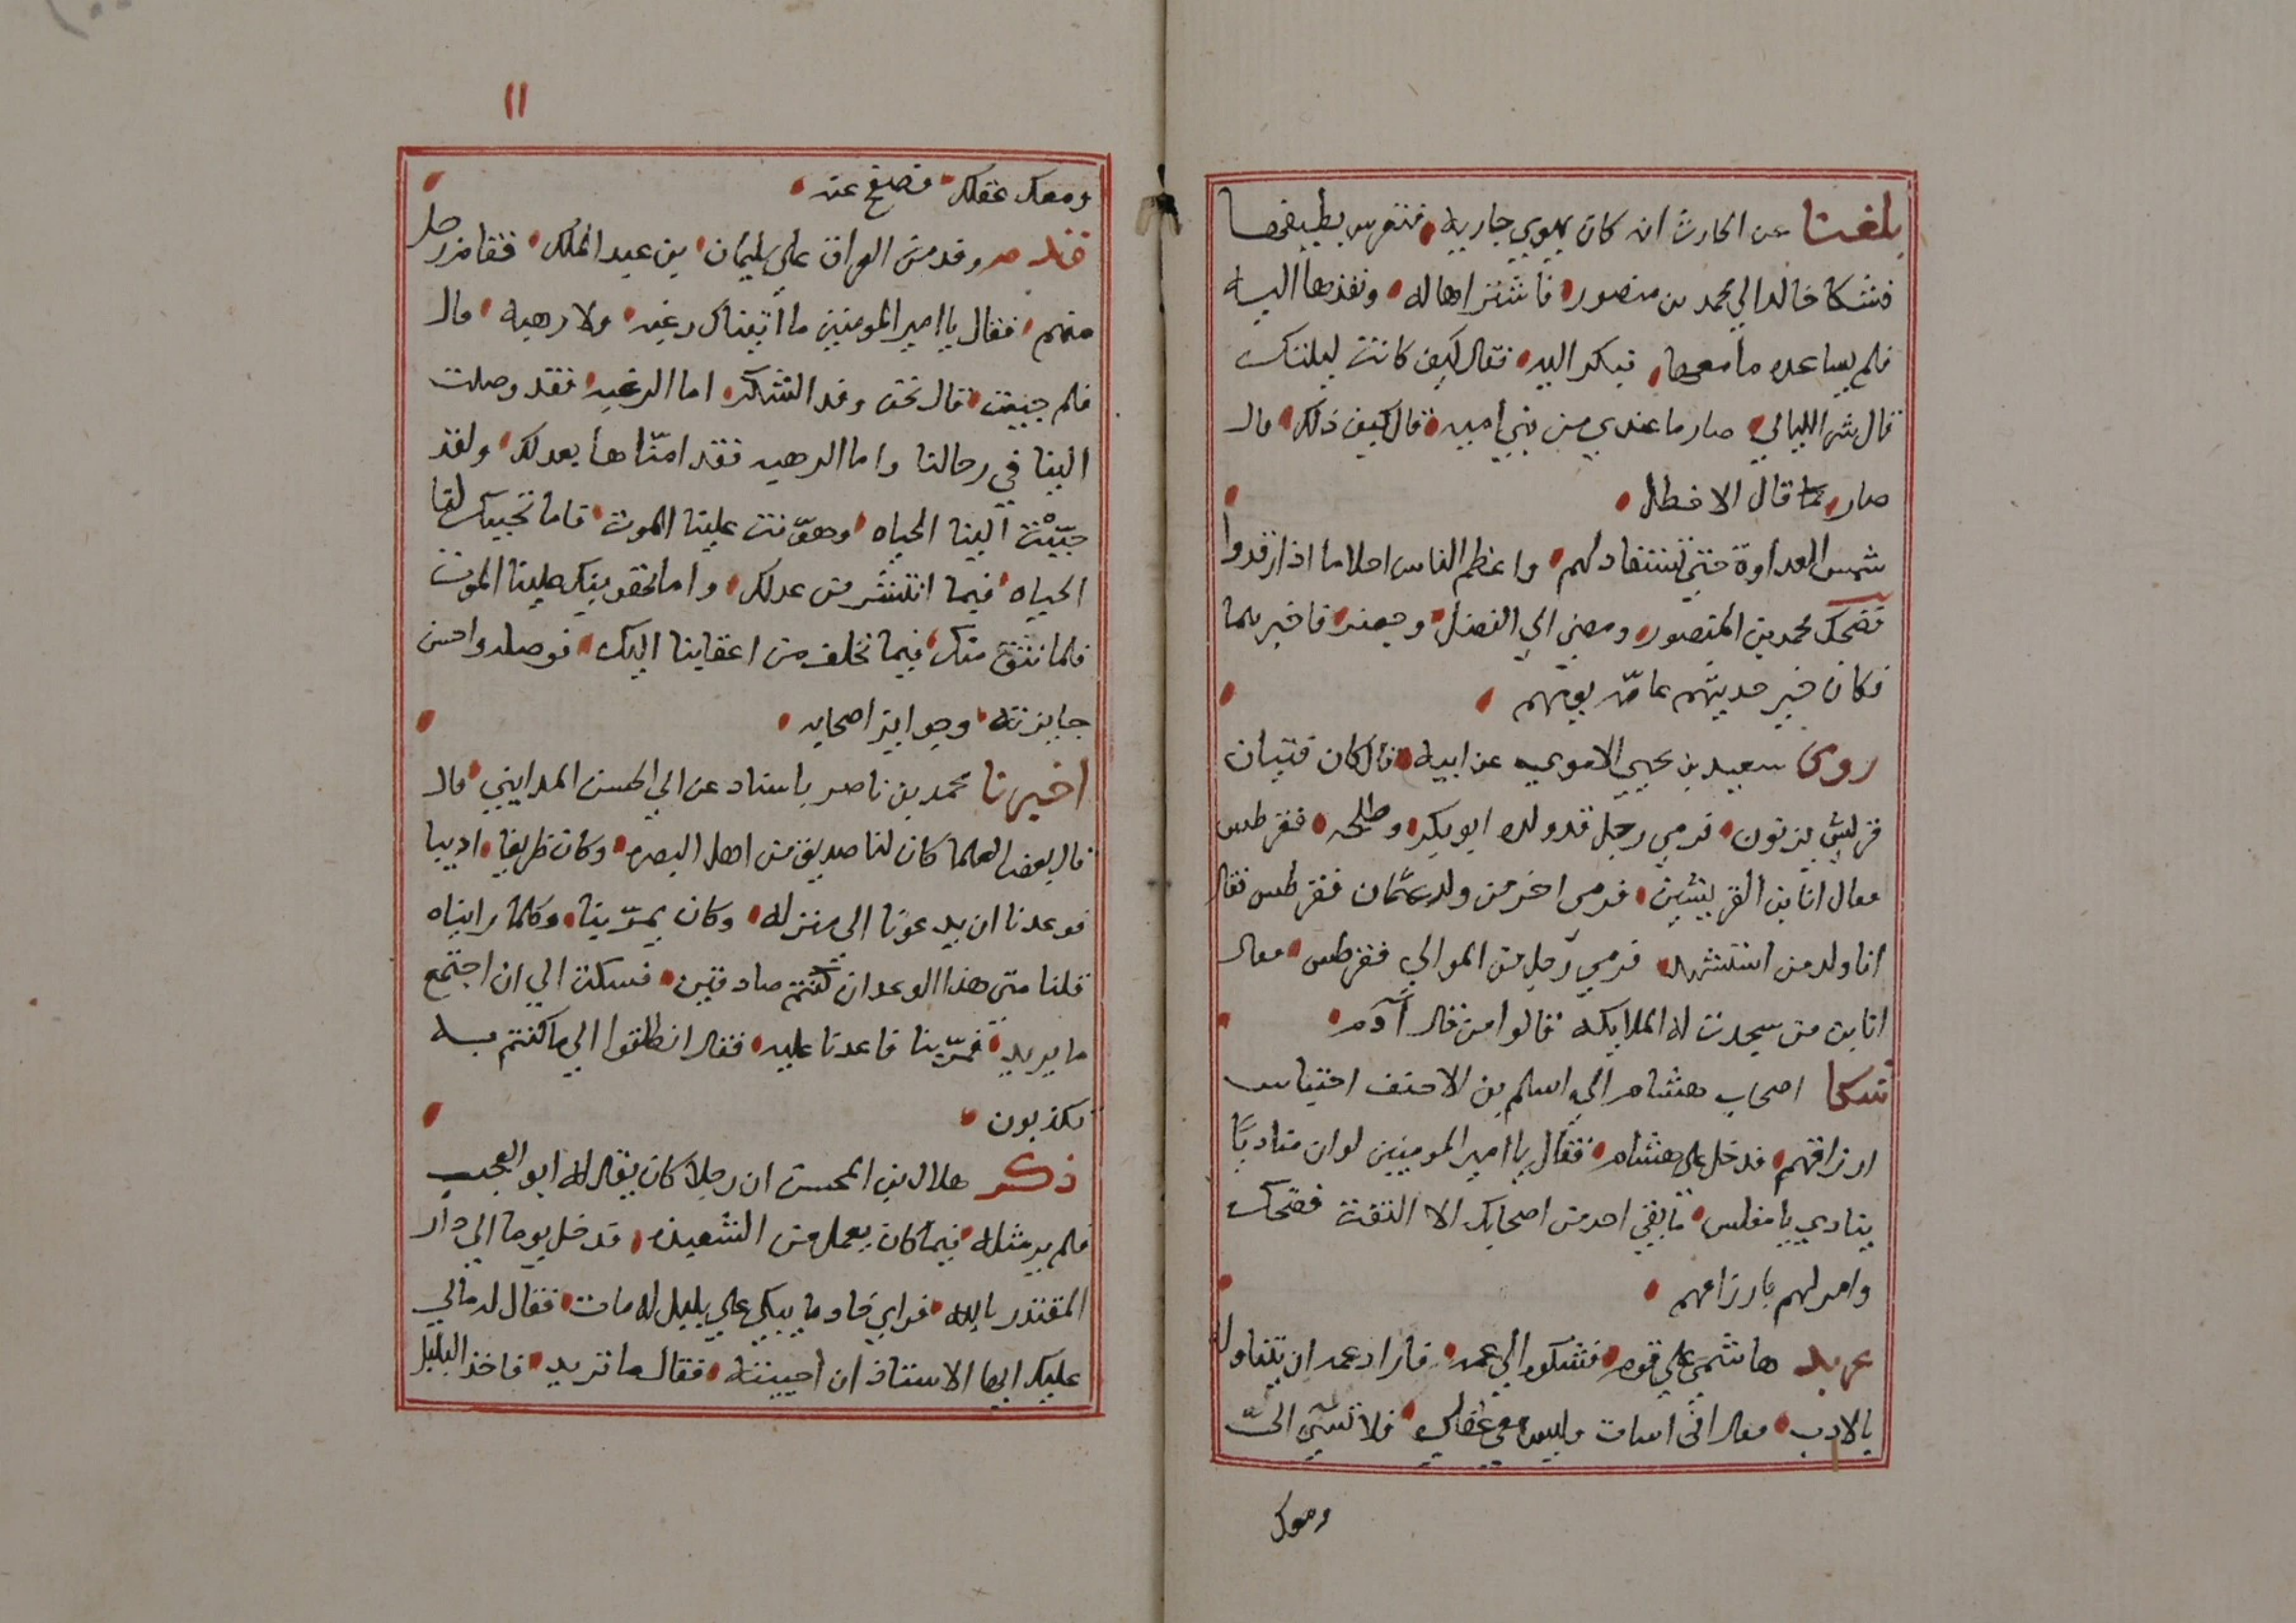 بلغنا عن الحارث انه كان يهوي جاريه فتفرس بطيفها
فشكا خالد الي محمد بن منصور فاشتراها له ونفذها اليه
فلم يساعده ما معها فبكر اليه فقال كيف كانت ليلتك
قال شر الليالي صار ما عندي من بني اميه قال كيف ذلك قال
صار كما قال الاخطل
شمس العداوة حتي تستقاد لهم واعظم الناس احلاما اذا قدروا
فضحك محمد بن المنصور ومضي الي الفضل وجعفر فاخبرهما
فكان خبر حديثهم عامّة يومهم
روى سعيد بن يحيي الاموي عن ابيه قال كان فتيان
قريش يرمون فرمي رجل قد ولده ابو بكر وطلحه فقرطس
فقال انا بن القرينين فرمى اخر من ولد عثمان فقرطس فقال
انا ولد من استشهد فرمي رجل من الموالي فقرطس فقال
انا بن من سجدت له الملايكه فقالوا من قال آدم
شكا اصحاب هشام الي اسلم بن الاحنف احتباس
ارزاقهم فدخل على هشام فقال يا امير المومنين لو ان مناديًا
ينادي يا مفلس ما بقي احد من اصحابك الا التفت فضحك
وامر لهم بارزاقهم
عربد هاشمي علي قوم فشكوه الي عمه فاراد عمه ان يتناوله
بالادب فقال اني اسات وليس معي عقلي فلا تسي اليّ
ومعك
١١
ومعك عقلك فصفح عنه
قدم وفد من العراق علي سليمان بن عبد الملك فقام رجل
منهم فقال يا امير المومنين ما اتيناك رغبه ولا رهبه قال
فلم جيت قال نحن وفد الشكر اما الرغبه فقد وصلت
الينا في رحالنا واما الرهبه فقد امنّاها بعدلك ولقد
حبّبت الينا الحياه وهوّنت علينا الموت فاما تحبيبك لنا
الحياه فيما انتشر من عدلك واما تهوينك علينا الموت
فلما نثق منك فيما تخلف من اعقابنا اليك فوصله واحسن
جايزته وجوايز اصحابه
اخبرنا محمد بن ناصر باسناد عن ابي الحسن المدايني قال
قال بعض العلما كان لنا صديق من اهل البصره وكان ظريفا اديبا
فوعدنا ان يدعونا الى منزله وكان يمرّ بنا وكلما رايناه
قلنا متى هذا الوعد ان كنتم صادقين فسكت الي ان اجتمع
ما يريد فمرّ بنا فاعدنا عليه فقال انطلقوا الي ما كنتم به
تكذبون
ذكر هلال بن المحسن ان رجلا كان يقال له ابو العجب
فلم ير مثله فيما كان يعمل من الشعبذه قد دخل يوما الي دار
المقتدر بالله فراي خادما يبكي علي بلبل له مات فقال له مالي
عليك ايها الاستاذ ان احييته فقال ما تريد فاخذ البلبل